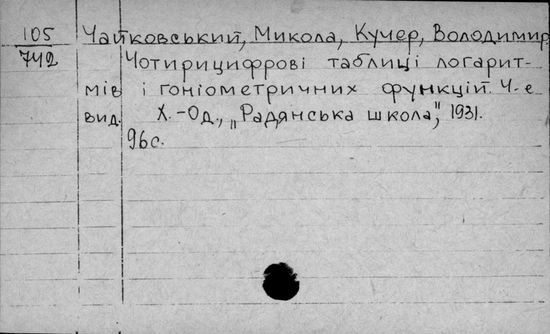 105 Чайковський, Микола, Кучер, Володимир
742 Чотирицифрові таблиці логарит-
мів і гоніометричних функцій. 4-е
вид. Х.-Од., „Радянська школа", 1931.
96с.